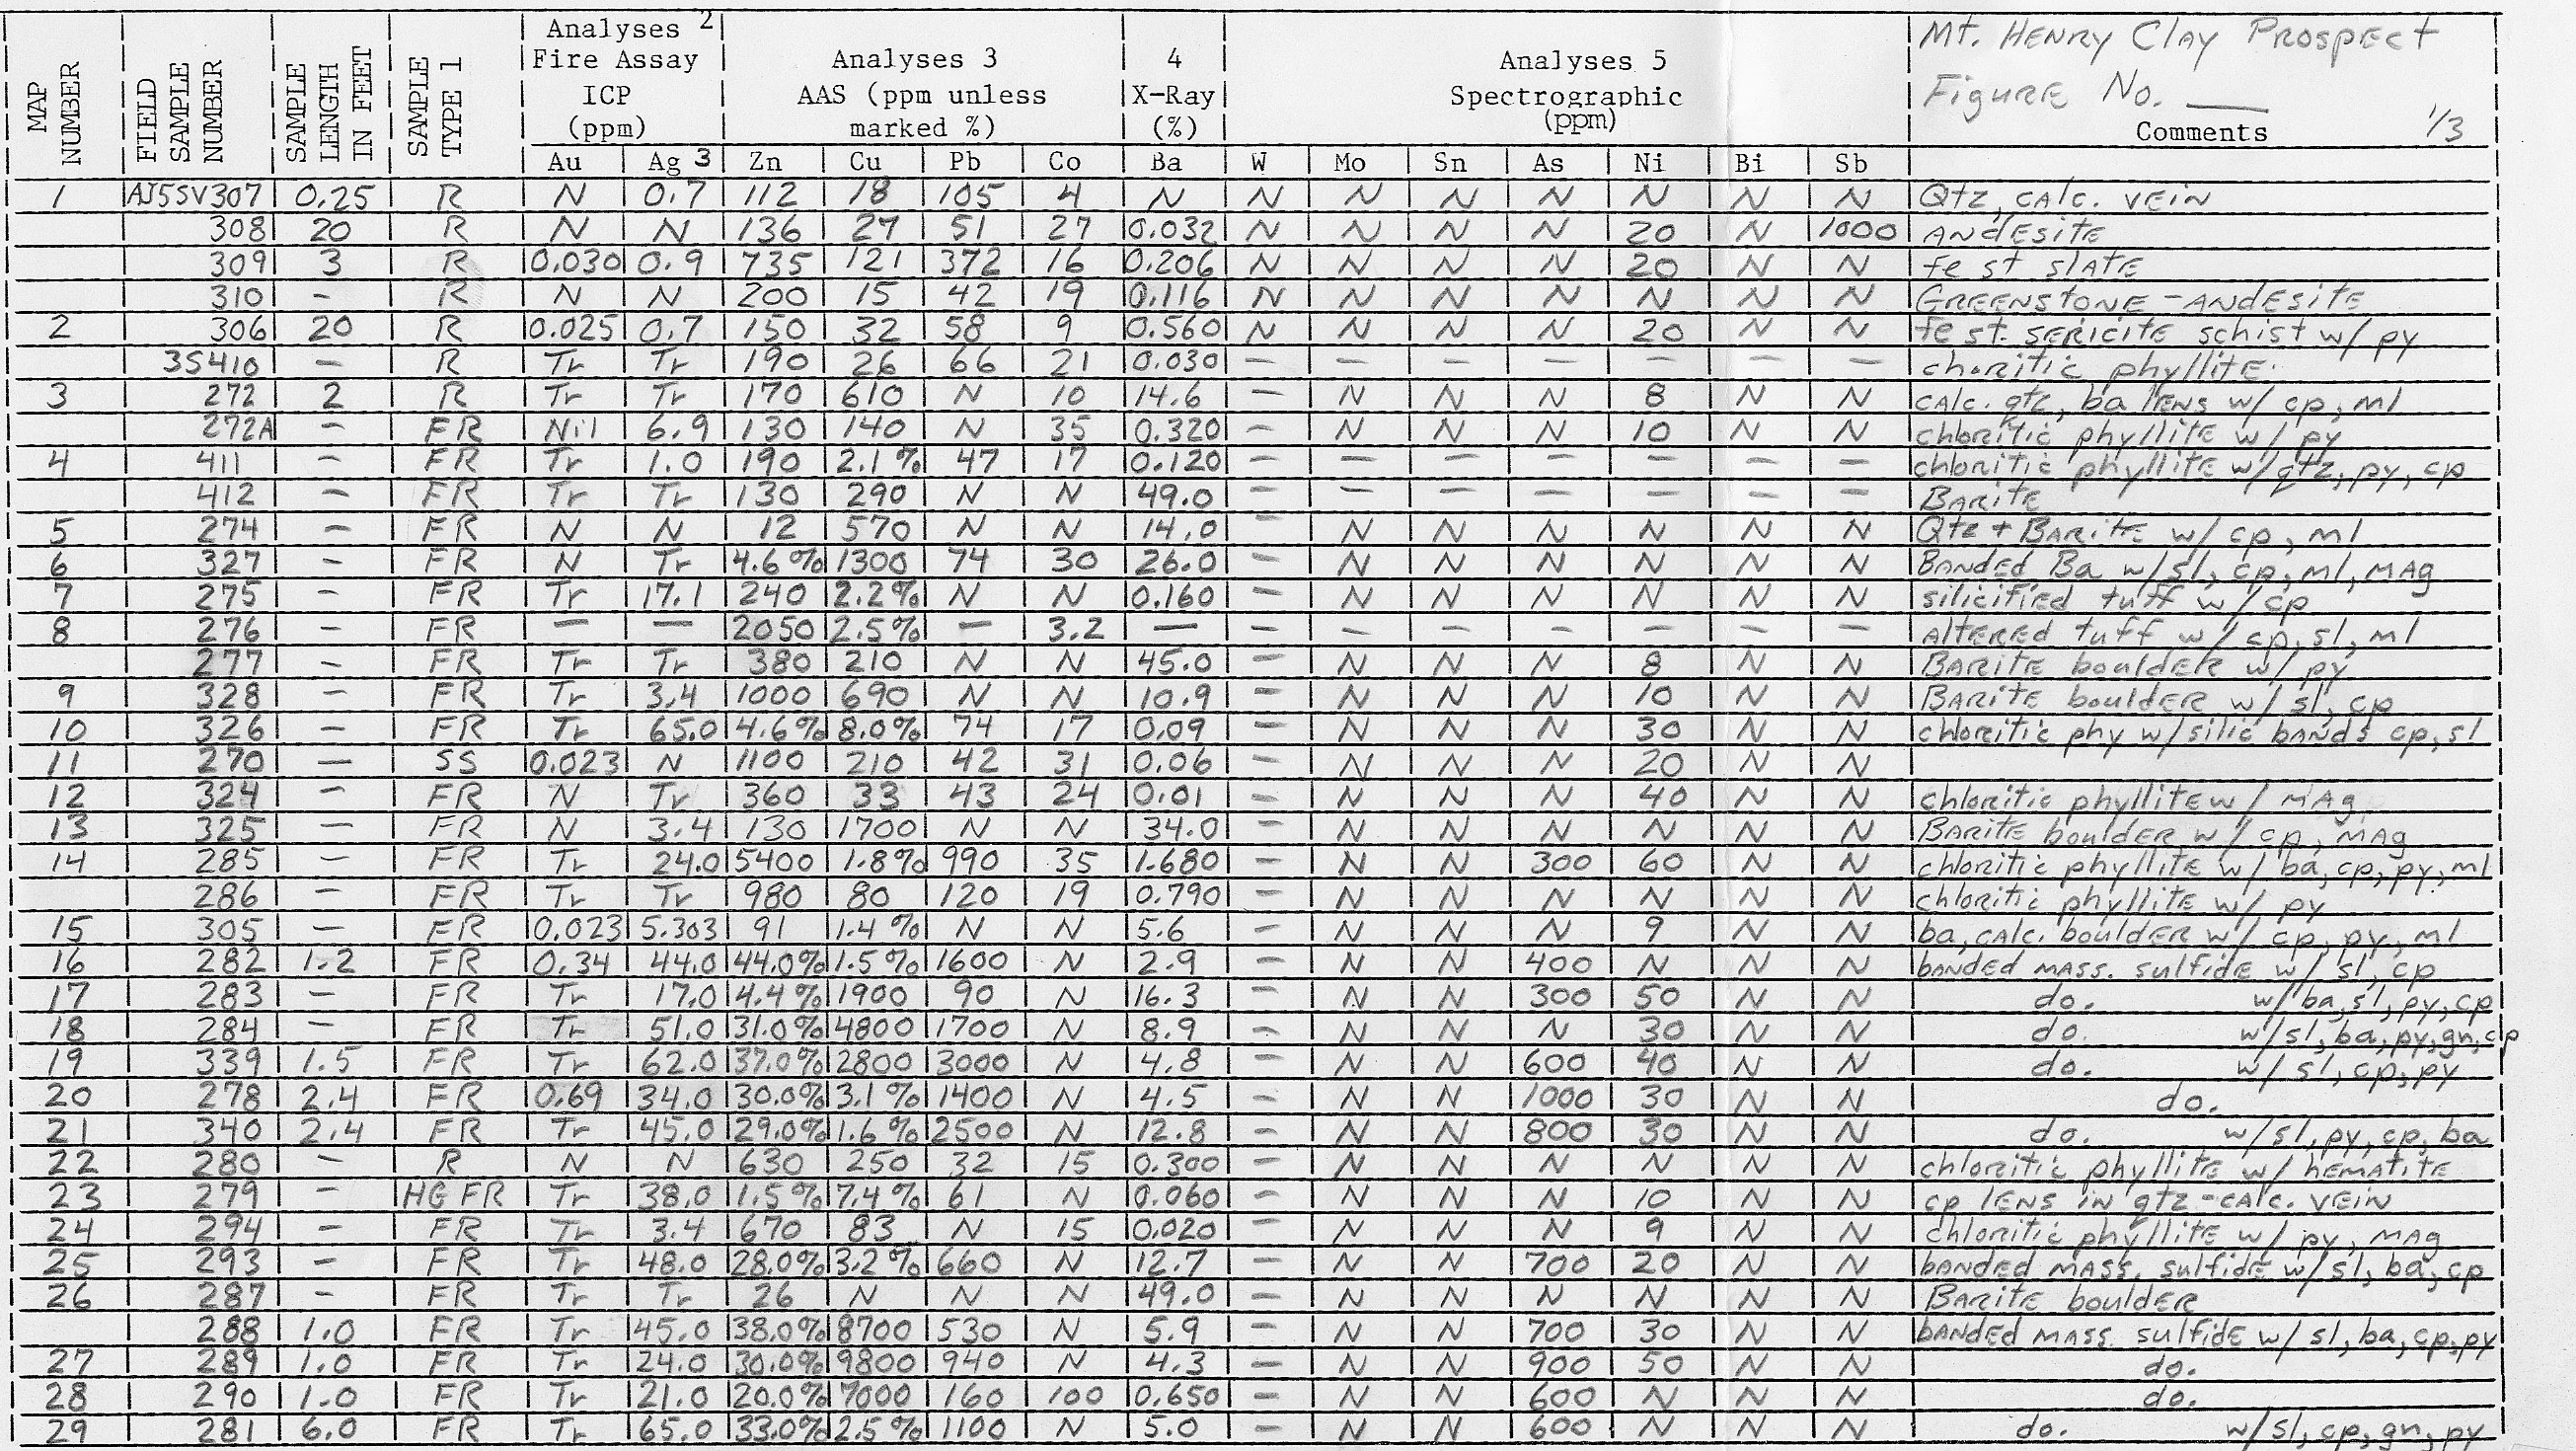 MAP NUMBER | FIELD SAMPLE NUMBER | SAMPLE LENGTH IN FEET | SAMPLE TYPE 1 | Analyses 2 Fire Assay ICP (ppm) | Analyses 3 AAS (ppm unless marked %) | 4 X-Ray (%) | Analyses 5 Spectrographic (ppm) | Mt. HENRY Clay Prospect Figure No. ____ Comments 1/3
Au | Ag 3 | Zn | Cu | Pb | Co | Ba | W | Mo | Sn | As | Ni | Bi | Sb
1 | AJ5SV307 | 0.25 | R | N | 0.7 | 112 | 18 | 105 | 4 | N | N | N | N | N | N | N | N | Qtz, calc. vein
308 | 20 | R | N | N | 136 | 27 | 51 | 27 | 0.032 | N | N | N | N | 20 | N | 1000 | Andesite
309 | 3 | R | 0.030 | 0.9 | 735 | 121 | 372 | 16 | 0.206 | N | N | N | N | 20 | N | N | fe st slate
310 | - | R | N | N | 200 | 15 | 42 | 19 | 0.116 | N | N | N | N | N | N | N | Greenstone - Andesite
2 | 306 | 20 | R | 0.025 | 0.7 | 150 | 32 | 58 | 9 | 0.560 | N | N | N | N | 20 | N | N | fe st. sericite schist w/ py
3S410 | - | R | Tr | Tr | 190 | 26 | 66 | 21 | 0.030 | - | - | - | - | - | - | - | choritic phyllite.
3 | 272 | 2 | R | Tr | Tr | 170 | 610 | N | 10 | 14.6 | - | N | N | N | 8 | N | N | calc. qtz, ba lens w/ cp, ml
272A | - | FR | Nil | 6.9 | 130 | 140 | N | 35 | 0.320 | - | N | N | N | 10 | N | N | chloritic phyllite w/ py
4 | 411 | - | FR | Tr | 1.0 | 190 | 2.1% | 47 | 17 | 0.120 | - | - | - | - | - | - | - | chloritic phyllite w/ qtz, py, cp
412 | - | FR | Tr | Tr | 130 | 290 | N | N | 49.0 | - | - | - | - | - | - | - | Barite
5 | 274 | - | FR | N | N | 12 | 570 | N | N | 14.0 | - | N | N | N | N | N | N | Qtz + Barite w/ cp, ml
6 | 327 | - | FR | N | Tr | 4.6% | 1300 | 74 | 30 | 26.0 | - | N | N | N | N | N | N | Banded Ba w/ sl, cp, ml, mag
7 | 275 | - | FR | Tr | 17.1 | 240 | 2.2% | N | N | 0.160 | - | N | N | N | N | N | N | silicified tuff w/ cp
8 | 276 | - | FR | - | - | 2050 | 2.5% | - | 3.2 | - | - | - | - | - | - | - | - | Altered tuff w/ cp, sl, ml
277 | - | FR | Tr | Tr | 380 | 210 | N | N | 45.0 | - | N | N | N | 8 | N | N | Barite boulder w/ py
9 | 328 | - | FR | Tr | 3.4 | 1000 | 690 | N | N | 10.9 | - | N | N | N | 10 | N | N | Barite boulder w/ sl, cp
10 | 326 | - | FR | Tr | 65.0 | 4.6% | 8.0% | 74 | 17 | 0.09 | - | N | N | N | 30 | N | N | chloritic phy w/ silic bands cp, sl
11 | 270 | - | SS | 0.023 | N | 1100 | 210 | 42 | 31 | 0.06 | - | N | N | N | 20 | N | N
12 | 324 | - | FR | N | Tr | 360 | 33 | 43 | 24 | 0.01 | - | N | N | N | 40 | N | N | chloritic phyllite w/ mag
13 | 325 | - | FR | N | 3.4 | 130 | 1700 | N | N | 34.0 | - | N | N | N | N | N | N | Barite boulder w/ cp, mag
14 | 285 | - | FR | Tr | 24.0 | 5400 | 1.8% | 990 | 35 | 1.680 | - | N | N | 300 | 60 | N | N | chloritic phyllite w/ ba, cp, py, ml
286 | - | FR | Tr | Tr | 980 | 80 | 120 | 19 | 0.790 | - | N | N | N | N | N | N | chloritic phyllite w/ py
15 | 305 | - | FR | 0.023 | 5.303 | 91 | 1.4% | N | N | 5.6 | - | N | N | N | 9 | N | N | ba, calc. boulder w/ cp, py, ml
16 | 282 | 1.2 | FR | 0.34 | 44.0 | 44.0% | 1.5% | 1600 | N | 2.9 | - | N | N | 400 | N | N | N | banded mass. sulfide w/ sl, cp
17 | 283 | - | FR | Tr | 17.0 | 4.4% | 1900 | 90 | N | 16.3 | - | N | N | 300 | 50 | N | N | do. w/ ba, sl, py, cp
18 | 284 | - | FR | Tr | 51.0 | 31.0% | 4800 | 1700 | N | 8.9 | - | N | N | N | 30 | N | N | do. w/ sl, ba, py, gn, cp
19 | 339 | 1.5 | FR | Tr | 62.0 | 37.0% | 2800 | 3000 | N | 4.8 | - | N | N | 600 | 40 | N | N | do. w/ sl, cp, py
20 | 278 | 2.4 | FR | 0.69 | 34.0 | 30.0% | 3.1% | 1400 | N | 4.5 | - | N | N | 1000 | 30 | N | N | do.
21 | 340 | 2.4 | FR | Tr | 45.0 | 29.0% | 1.6% | 2500 | N | 12.8 | - | N | N | 800 | 30 | N | N | do. w/ sl, py, cp, ba
22 | 280 | - | R | N | N | 630 | 250 | 32 | 15 | 0.300 | - | N | N | N | N | N | N | chloritic phyllite w/ hematite
23 | 279 | - | HG FR | Tr | 38.0 | 1.5% | 7.4% | 61 | N | 0.060 | - | N | N | N | 10 | N | N | cp lens in qtz-calc. vein
24 | 294 | - | FR | Tr | 3.4 | 670 | 83 | N | 15 | 0.020 | - | N | N | N | 9 | N | N | chloritic phyllite w/ py, mag
25 | 293 | - | FR | Tr | 48.0 | 28.0% | 3.2% | 660 | N | 12.7 | - | N | N | 700 | 20 | N | N | banded mass. sulfide w/ sl, ba, cp
26 | 287 | - | FR | Tr | Tr | 26 | N | N | N | 49.0 | - | N | N | N | N | N | N | Barite boulder
288 | 1.0 | FR | Tr | 45.0 | 38.0% | 8700 | 530 | N | 5.9 | - | N | N | 700 | 30 | N | N | banded mass. sulfide w/ sl, ba, cp, py
27 | 289 | 1.0 | FR | Tr | 24.0 | 30.0% | 9800 | 940 | N | 4.3 | - | N | N | 900 | 50 | N | N | do.
28 | 290 | 1.0 | FR | Tr | 21.0 | 20.0% | 7000 | 160 | 100 | 0.650 | - | N | N | 600 | N | N | N | do.
29 | 281 | 6.0 | FR | Tr | 65.0 | 33.0% | 2.5% | 1100 | N | 5.0 | - | N | N | 600 | N | N | N | do. w/ sl, cp, gn, py